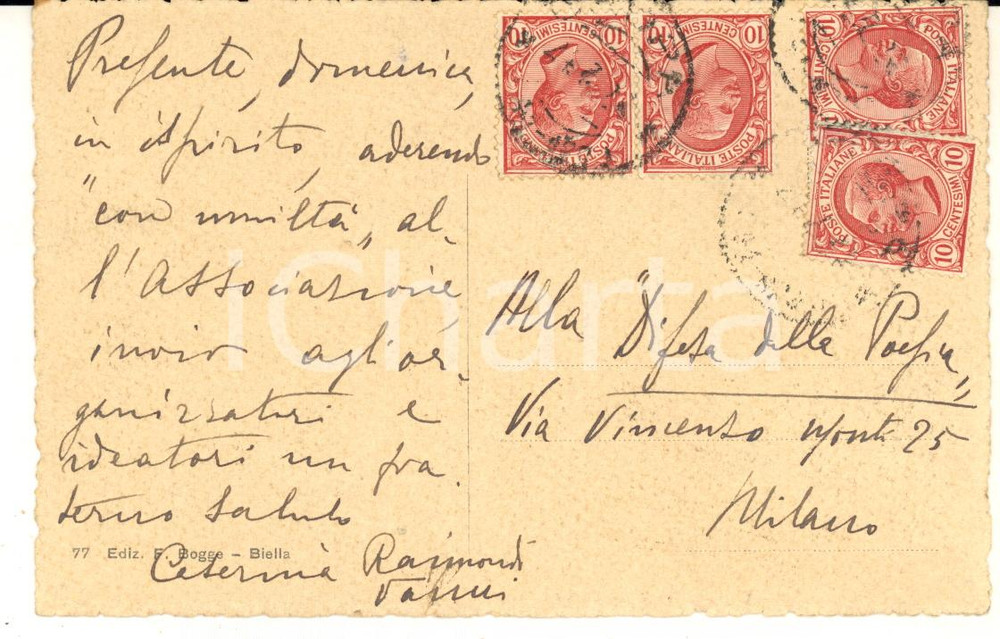 Presente, domenica,
in ispirito, aderendo
"con umiltà" al-
l'Associazione,
invio agli or-
ganizzatori e
ideatori un fra
terno saluto
77 Ediz. F. Bogge - Biella
Caterina Raimondi
Vanni
Alla "Difesa della Poesia"
Via Vincenzo Monti 25
Milano
10 CENTESIMI 10
POSTE ITALIANE
10 CENTESIMI 10
POSTE ITALIANE
10 CENTESIMI
POSTE ITALIANE
POSTE ITALIANE
10 CENTESIMI 10
iCharta